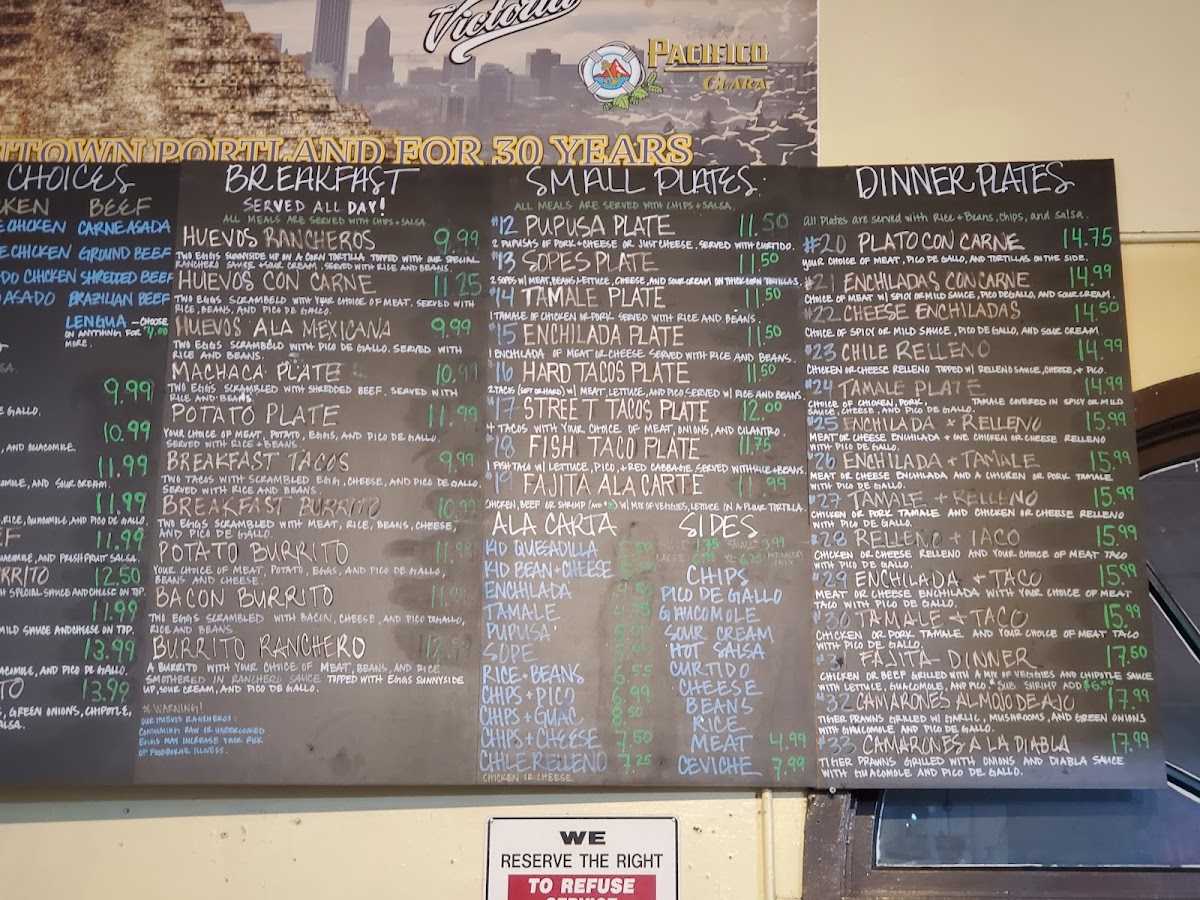 Victoria
CERVEZA
PACIFICO
CLARA
TOWN PORTLAND FOR 30 YEARS
CHOICES
KEN BEEF
E CHICKEN CARNE ASADA
E CHICKEN GROUND BEEF
DO CHICKEN SHREDDED BEEF
ASADO BRAZILIAN BEEF
LENGUA - CHOOSE
ON ANYTHING FOR $4.00
MORE.
9.99
E GALLO,
10.99
, AND GUACOMILE.
11.99
OMILE, AND SOUR CREAM.
11.99
, RICE, GUACOMILE, AND PICO DE GALLO.
EF 11.99
UACOMILE, AND FRESH FRUIT SALSA.
RRITO 12.50
H SPECIAL SAUCE AND CHEESE ON TOP.
11.99
MILD SAUCE AND CHEESE ON TOP.
13.99
ACOMILE, AND PICO DE GALLO.
TO 13.99
S, GREEN ONIONS, CHIPOTLE,
ALSA.
BREAKFAST
SERVED ALL DAY!
ALL MEALS ARE SERVED WITH CHIPS + SALSA
HUEVOS RANCHEROS 9.99
TWO EGGS SUNNYSIDE UP ON A CORN TORTILLA TOPPED WITH OUR SPECIAL
RANCHERO SAUCE + SOUR CREAM, SERVED WITH RICE AND BEANS.
HUEVOS CON CARNE 11.25
TWO EGGS SCRAMBELD WITH YOUR CHOICE OF MEAT. SERVED WITH
RICE, BEANS, AND PICO DE GALLO.
HUEVOS ALA MEXICANA 9.99
TWO EGGS SCRAMBELD WITH PICO DE GALLO. SERVED WITH
RICE AND BEANS.
MACHACA PLATE 10.99
TWO EGGS SCRAMBLED WITH SHREDDED BEEF. SERVED WITH
RICE AND BEANS.
POTATO PLATE 11.99
YOUR CHOICE OF MEAT, POTATO, EGGS, AND PICO DE GALLO.
SERVED WITH RICE + BEANS.
BREAKFAST TACOS 9.99
TWO TACOS WITH SCRAMBLED EGG, CHEESE, AND PICO DE GALLO,
SERVED WITH RICE AND BEANS.
BREAKFAST BURRITO 10.99
TWO EGGS SCRAMBLED WITH MEAT, RICE, BEANS, CHEESE,
AND PICO DE GALLO.
POTATO BURRITO
YOUR CHOICE OF MEAT, POTATO, EGGS, AND PICO DE GALLO,
BEANS AND CHEESE.
BACON BURRITO
TWO EGGS SCRAMBLED WITH BACON, CHEESE, AND PICO DE GALLO,
RICE AND BEANS.
BURRITO RANCHERO
A BURRITO WITH YOUR CHOICE OF MEAT, BEANS, AND RICE
SMOTHERED IN RANCHERO SAUCE TOPPED WITH EGGS SUNNYSIDE
UP, SOUR CREAM, AND PICO DE GALLO.
* WARNING!
OUR HUEVOS RANCHEROS:
CONSUMING RAW OR UNDERCOOKED
EGGS MAY INCREASE YOUR RISK
OF FOODBORNE ILLNESS.
SMALL PLATES
ALL MEALS ARE SERVED WITH CHIPS + SALSA.
#12 PUPUSA PLATE 11.50
2 PUPUSAS OF PORK + CHEESE OR JUST CHEESE. SERVED WITH CURTIDO.
#13 SOPES PLATE 11.50
2 SOPES W/ MEAT, BEANS, LETTUCE, CHEESE, AND SOUR CREAM ON THICK CORN TORTILLAS.
#14 TAMALE PLATE 11.50
1 TAMALE OF CHICKEN OR PORK SERVED WITH RICE AND BEANS.
#15 ENCHILADA PLATE 11.50
1 ENCHILADA OF MEAT OR CHEESE SERVED WITH RICE AND BEANS.
#16 HARD TACOS PLATE 11.50
2 TACOS (SOFT OR HARD) W/ MEAT, LETTUCE, AND PICO SERVED W/ RICE AND BEANS.
#17 STREET TACOS PLATE 12.00
4 TACOS WITH YOUR CHOICE OF MEAT, ONIONS, AND CILANTRO.
#18 FISH TACO PLATE 11.75
1 FISH TACO W/ LETTUCE, PICO, + RED CABBAGE SERVED WITH RICE + BEANS.
#19 FAJITA ALA CARTE 11.99
CHICKEN, BEEF OR SHRIMP W/ MIX OF VEGGIES, LETTUCE IN A FLOUR TORTILLA.
ALA CARTA
KID QUESADILLA
KID BEAN + CHEESE
ENCHILADA
TAMALE 4.95
PUPUSA
SOPE
RICE + BEANS 6.55
CHIPS + PICO 6.99
CHIPS + GUAC 8.50
CHIPS + CHEESE 7.50
CHILE RELLENO 7.25
CHICKEN OR CHEESE
SIDES
CHIPS
PICO DE GALLO
GUACOMOLE
SOUR CREAM
HOT SALSA
CURTIDO
CHEESE
BEANS
RICE
MEAT 4.99
CEVICHE 7.99
DINNER PLATES
All Plates are served with Rice + Beans, Chips, and Salsa.
#20 PLATO CON CARNE 14.75
YOUR CHOICE OF MEAT, PICO DE GALLO, AND TORTILLAS ON THE SIDE.
#21 ENCHILADAS CON CARNE 14.99
CHOICE OF MEAT W/ SPICY OR MILD SAUCE, PICO DE GALLO, AND SOUR CREAM.
#22 CHEESE ENCHILADAS 14.50
CHOICE OF SPICY OR MILD SAUCE, PICO DE GALLO, AND SOUR CREAM
#23 CHILE RELLENO 14.99
CHICKEN OR CHEESE RELLENO TOPPED W/ RELLENO SAUCE, CHEESE, + PICO.
#24 TAMALE PLATE 14.99
CHOICE OF CHICKEN, PORK, TAMALE COVERED IN SPICY OR MILD
SAUCE, CHEESE, AND PICO DE GALLO.
#25 ENCHILADA + RELLENO 15.99
MEAT OR CHEESE ENCHILADA + ONE CHICKEN OR CHEESE RELLENO
WITH PICO DE GALLO.
#26 ENCHILADA + TAMALE 15.99
MEAT OR CHEESE ENCHILADA AND A CHICKEN OR PORK TAMALE
WITH PICO DE GALLO.
#27 TAMALE + RELLENO 15.99
CHIKEN OR PORK TAMALE AND CHICKEN OR CHEESE RELLENO
WITH PICO DE GALLO.
#28 RELLENO + TACO 15.99
CHICKEN OR CHEESE RELLENO AND YOUR CHOICE OF MEAT TACO
WITH PICO DE GALLO.
#29 ENCHILADA + TACO 15.99
MEAT OR CHEESE ENCHILADA AND YOUR CHOICE OF MEAT
TACO WITH PICO DE GALLO.
#30 TAMALE + TACO 15.99
CHICKEN OR PORK TAMALE AND YOUR CHOICE OF MEAT TACO
WITH PICO DE GALLO.
#31 FAJITA DINNER 17.50
CHICKEN OR BEEF GRILLED WITH A MIX OF VEGGIES AND CHIPOTLE SAUCE
WITH LETTUCE, GUACOMOLE, AND PICO. * SUB SHRIMP ADD $6.00
#32 CAMARONES AL MOJO DE AJO 17.99
TIGER PRAWNS GRILLED W/ GARLIC, MUSHROOMS, AND GREEN ONIONS
WITH GUACOMOLE AND PICO DE GALLO.
#33 CAMARONES A LA DIABLA 17.99
TIGER PRAWNS GRILLED WITH ONIONS AND DIABLA SAUCE
WITH GUACOMOLE AND PICO DE GALLO.
WE
RESERVE THE RIGHT
TO REFUSE
SERVICE